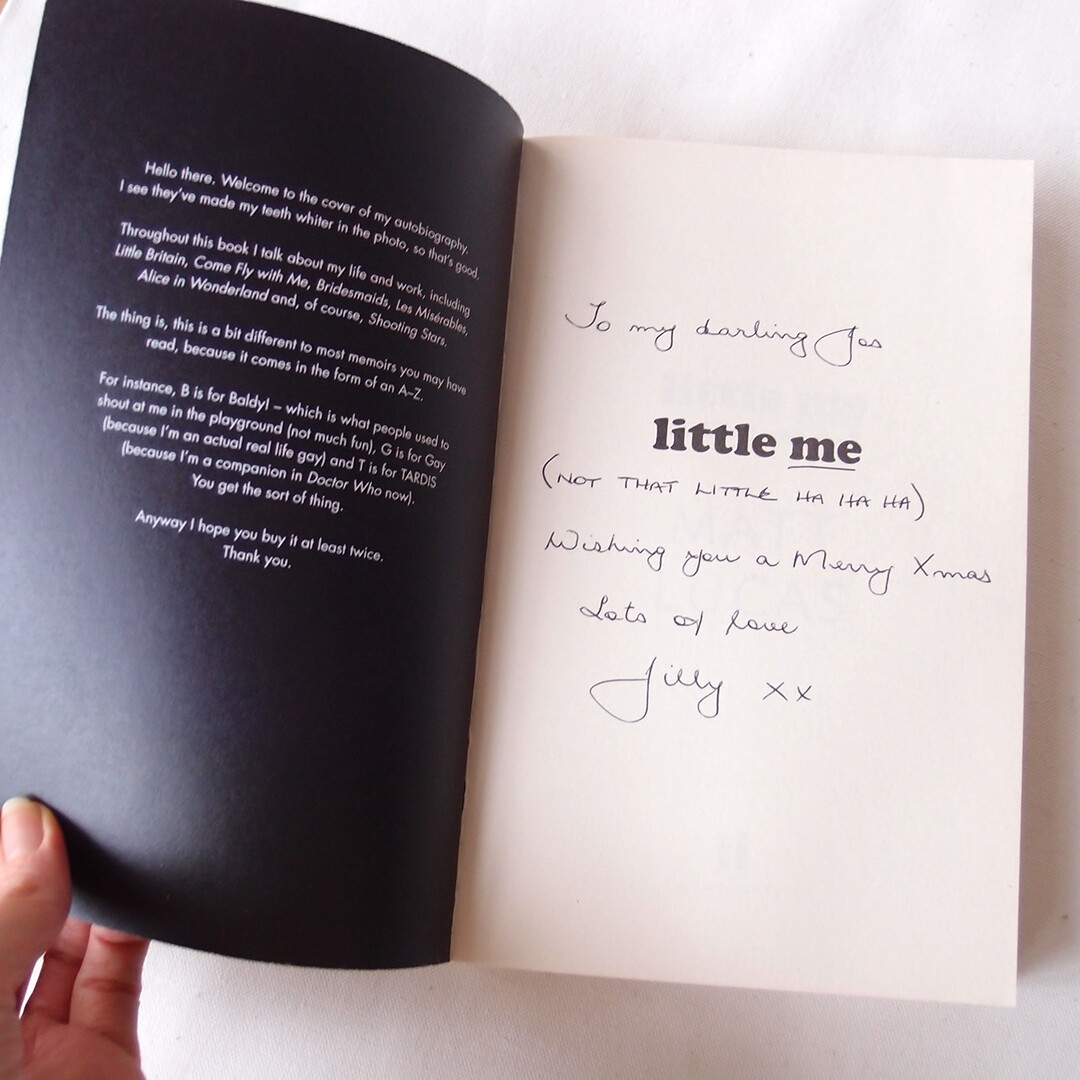 Hello there. Welcome to the cover of my autobiography.
I see they've made my teeth whiter in the photo, so that's good.
Throughout this book I talk about my life and work, including
Little Britain, Come Fly with Me, Bridesmaids, Les Misérables,
Alice in Wonderland and, of course, Shooting Stars.
The thing is, this is a bit different to most memoirs you may have
read, because it comes in the form of an A–Z.
For instance, B is for Baldy! – which is what people used to
shout at me in the playground (not much fun), G is for Gay
(because I'm an actual real life gay) and T is for TARDIS
(because I'm a companion in Doctor Who now).
You get the sort of thing.
Anyway I hope you buy it at least twice.
Thank you.
To my darling Jas
little me
(NOT THAT LITTLE HA HA HA)
Wishing you a Merry Xmas
Lots of love
Jilly xx